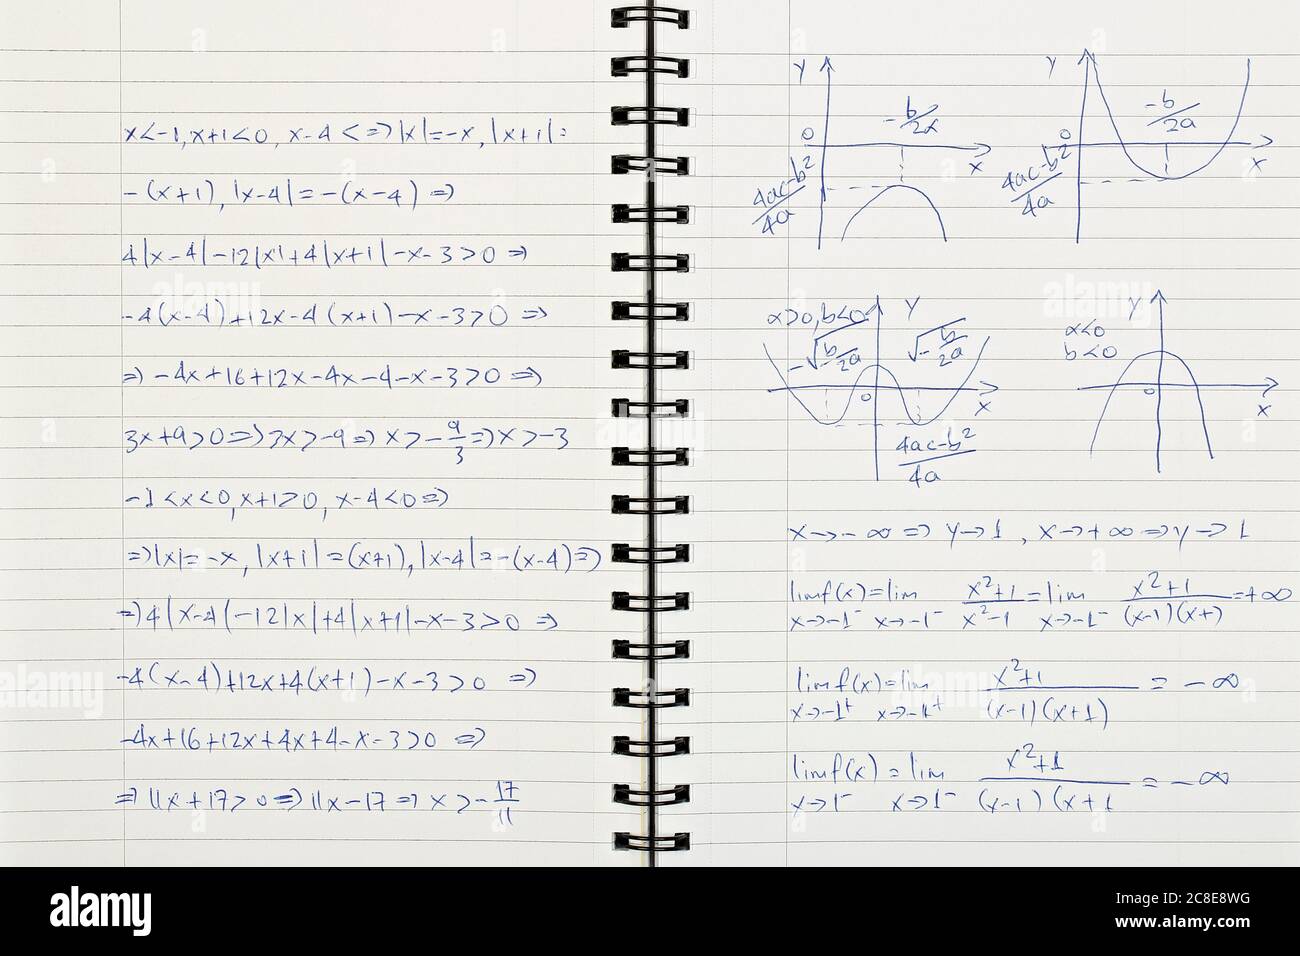 x<-1, x+1<0, x-4<=>|x|=-x, |x+1|=
-(x+1), |x-4|=-(x-4) =>
4|x-4|-12|x|+4|x+1|-x-3>0 =>
-4(x-4)+12x-4(x+1)-x-3>0 =>
=>-4x+16+12x-4x-4-x-3>0 =>
3x+9>0=>3x>-9=>x>-9/3=>x>-3
-1<x<0, x+1>0, x-4<0=>
=>|x|=-x, |x+1|=(x+1), |x-4|=-(x-4)=>
=>4|x-4(-12|x|+4|x+1|-x-3>0 =>
-4(x-4)+12x+4(x+1)-x-3>0 =>
-4x+16+12x+4x+4-x-3>0 =>
=>11x+17>0=>11x-17=>x>-17/11
y
-b/2x
0
x
4ac-b²/4a
y
-b/2a
0
x
4ac-b²/4a
α>0, b<0
y
-√-b/2a
√-b/2a
0
x
4ac-b²/4a
y
α<0
b<0
0
x
x→-∞=>y→1, x→+∞=>y→1
limf(x)=lim x²+1/x²-1=lim x²+1/(x-1)(x+)=+∞
x→-1⁻ x→-1⁻ x→-1⁻
limf(x)=lim x²+1/(x-1)(x+1)=-∞
x→-1⁺ x→-1⁺
limf(x)=lim x²+1/(x-1)(x+1=-∞
x→1⁻ x→1⁻
alamy
Image ID: 2C8E8WG
www.alamy.com